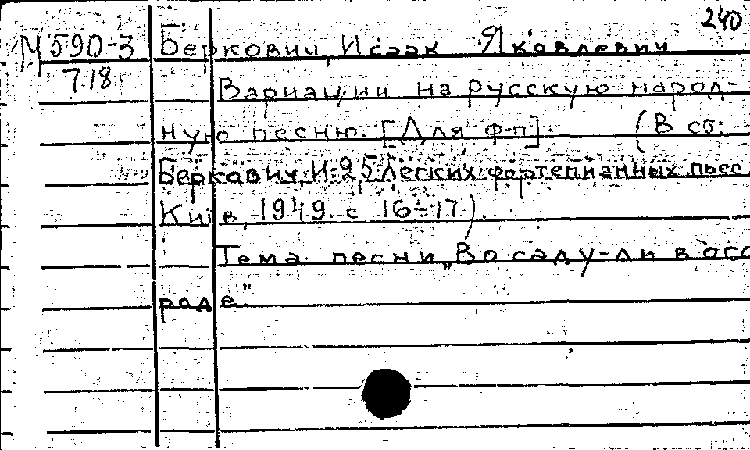 240
М590-3 Беркович, Исаак Яковлевич
7.18
Вариации на русскую народ-
ную песню. [Для ф-п] (В сб:
Беркович, И. 25 Легких фортепианных пьес
Київ, 1949. с 16-17).
Тема песни „Во саду-ли в ого
роде"